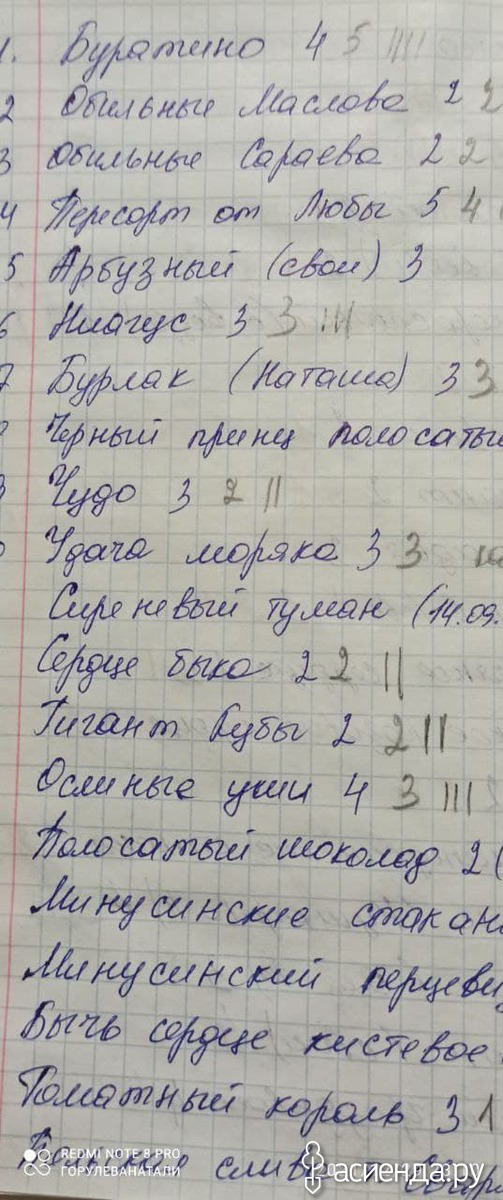 1. Буратино 4 5 ||||
2 Обильные Маслова 2 2
3 Обильные Сараева 2 2
4 Пересорт от Любы 5 4
5 Арбузный (свои) 3
6 Ниагус 3 3 |||
7 Бурлак (Наташа) 3 3
Черный принц полосатые
Чудо 3 2 ||
Удача моряка 3 3
Сиреневый туман (14.09.
Сердце быка 2 2 ||
Гигант Кубы 2 2 ||
Ослиные уши 4 3 |||
Полосатый шоколад 2 (
Минусинские стакан
Минусинский перцеви
Бычь сердце кистевое
Томатный король 3 1
REDMI NOTE 8 PRO
ГОРУЛЕВАНАТАЛИ
асиенда.ру